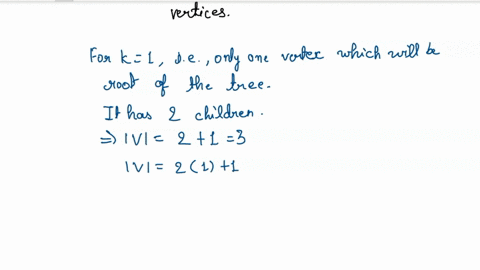 vertices.
For k=1, i.e., only one vertex which will be
root of the tree.
It has 2 children.
⇒ |V| = 2+1=3
|V| = 2(1)+1